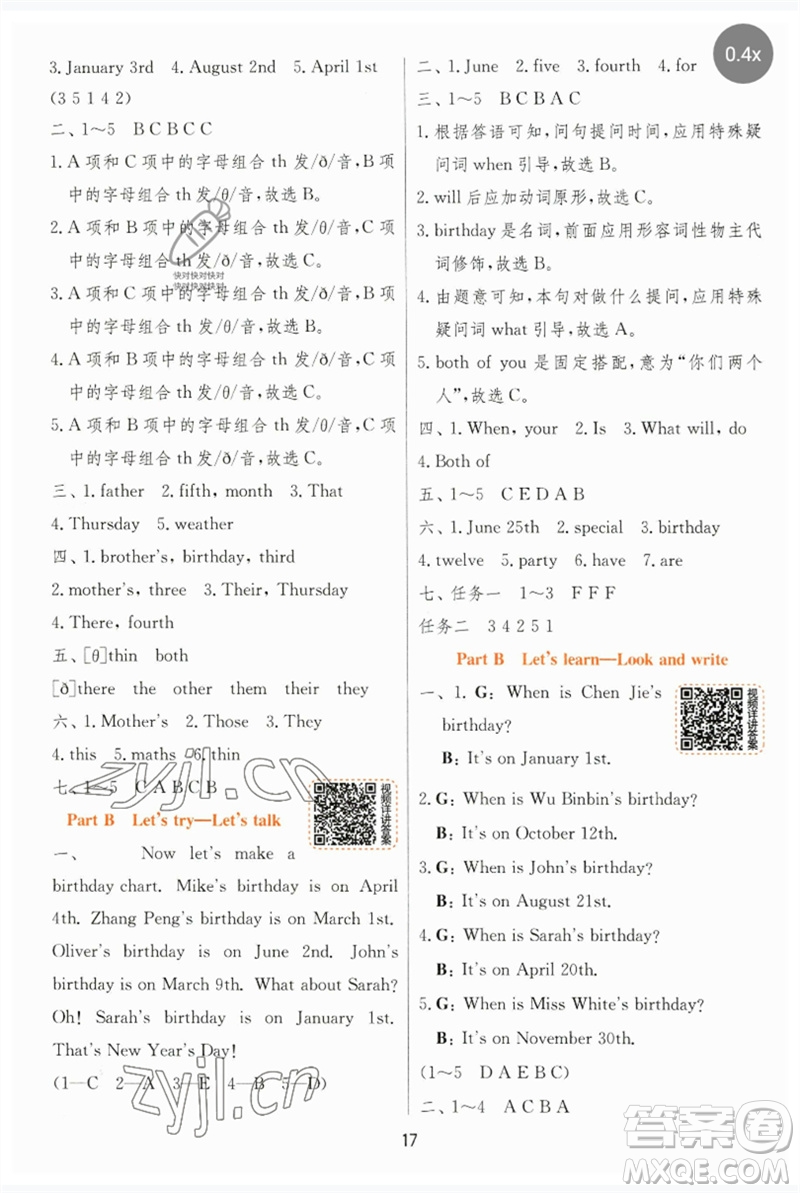 0.4x
3. January 3rd 4. August 2nd 5. April 1st
(3 5 1 4 2)
二、1～5 B C B C C
1. A 项和 C 项中的字母组合 th 发/ð/音，B 项
中的字母组合 th 发/θ/音，故选 B。
2. A 项和 B 项中的字母组合 th 发/θ/音，C 项
中的字母组合 th 发/ð/音，故选 C。
3. A 项和 C 项中的字母组合 th 发/ð/音，B 项
中的字母组合 th 发/θ/音，故选 B。
4. A 项和 B 项中的字母组合 th 发/ð/音，C 项
中的字母组合 th 发/θ/音，故选 C。
5. A 项和 B 项中的字母组合 th 发/θ/音，C 项
中的字母组合 th 发/ð/音，故选 C。
三、1. father 2. fifth, month 3. That
4. Thursday 5. weather
四、1. brother's, birthday, third
2. mother's, three 3. Their, Thursday
4. There, fourth
五、[θ]thin both
[ð]there the other them their they
六、1. Mother's 2. Those 3. They
4. this 5. maths 6. thin
七、1～5 C A B C B
Part B Let's try—Let's talk
视频详讲答案
一、 Now let's make a
birthday chart. Mike's birthday is on April
4th. Zhang Peng's birthday is on March 1st.
Oliver's birthday is on June 2nd. John's
birthday is on March 9th. What about Sarah?
Oh! Sarah's birthday is on January 1st.
That's New Year's Day!
(1—C 2—A 3—E 4—B 5—D)
二、1. June 2. five 3. fourth 4. for
三、B C B A C
1. 根据答语可知，问句提问时间，应用特殊疑
问词 when 引导，故选 B。
2. will 后应加动词原形，故选 C。
3. birthday 是名词，前面应用形容词性物主代
词修饰，故选 B。
4. 由题意可知，本句对做什么提问，应用特殊
疑问词 what 引导，故选 A。
5. both of you 是固定搭配，意为“你们两个
人”，故选 C。
四、1. When, your 2. Is 3. What will, do
4. Both of
五、1～5 C E D A B
六、1. June 25th 2. special 3. birthday
4. twelve 5. party 6. have 7. are
七、任务一 1～3 F F F
任务二 3 4 2 5 1
Part B Let's learn—Look and write
视频详讲答案
一、1. G: When is Chen Jie's
birthday?
B: It's on January 1st.
2. G: When is Wu Binbin's birthday?
B: It's on October 12th.
3. G: When is John's birthday?
B: It's on August 21st.
4. G: When is Sarah's birthday?
B: It's on April 20th.
5. G: When is Miss White's birthday?
B: It's on November 30th.
(1～5 D A E B C)
二、1～4 A C B A
17
快对快对快对
快对快对快对
zyjl.cn
zyjl.cn
答案卷
MXQE.COM